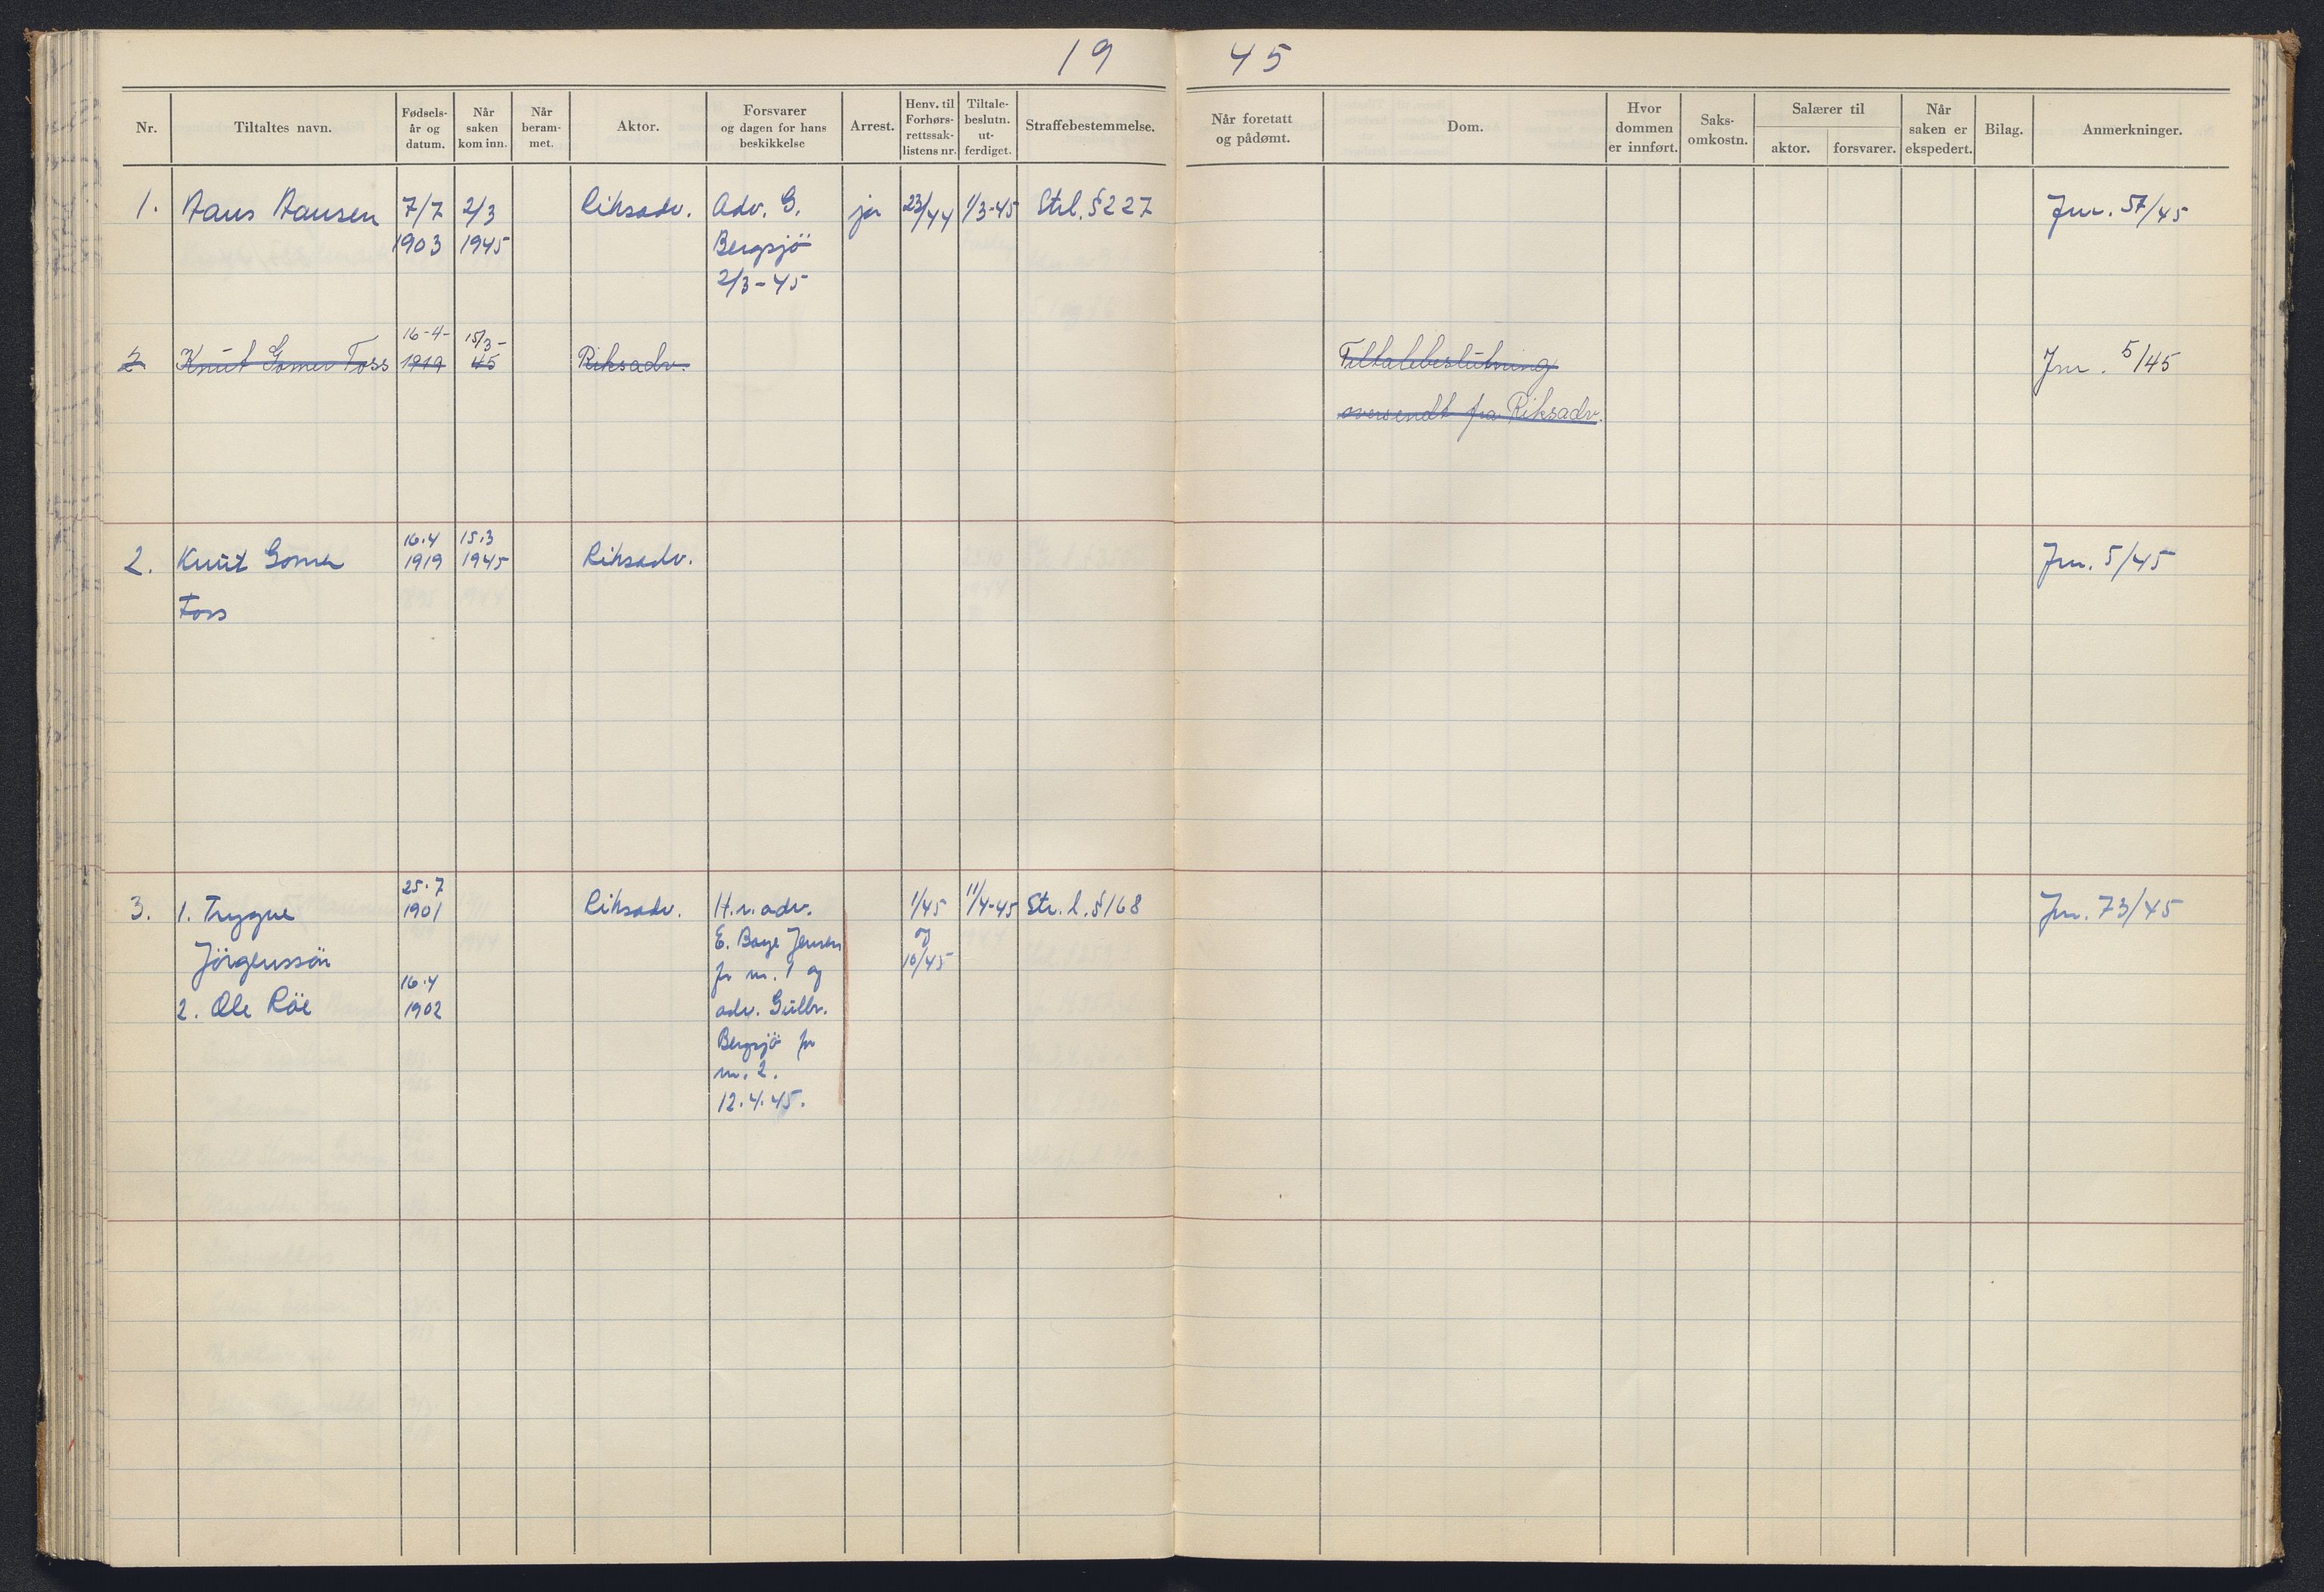 19 45
Nr.
Tiltaltes navn.
Fødsels-
år og
datum.
Når
saken
kom inn.
Når
beram-
met.
Aktor.
Forsvarer
og dagen for hans
beskikkelse
Arrest.
Henv. til
Forhørs-
rettssak-
listens nr.
Tiltale-
beslutn.
ut-
ferdiget.
Straffebestemmelse.
Når foretatt
og pådømt.
Dom.
Hvor
dommen
er innført.
Saks-
omkostn.
Salærer til
aktor.
forsvarer.
Når
saken er
ekspedert.
Bilag.
Anmerkninger.
1.
Hans Hansen
7/7
1903
2/3
1945
Riksadv.
Adv. G.
Bergsjö
2/3-45
ja
23/44
1/3-45
Strl. § 227
Jnr. 57/45
2
Knut Gomer Foss
16-4-
1919
15/3-
45
Riksadv.
Tiltalebeslutning
oversendt fra Riksadv.
Jnr. 5/45
2.
Knut Gomer
Foss
16.4
1919
15.3
1945
Riksadv.
Jnr. 5/45
3.
1. Trygve
Jörgenssön
2. Ole Röe
25.7
1901
16.4
1902
Riksadv.
H.r.adv.
E. Boye Jensen
for nr. 1 og
adv. Gullbr.
Bergsjö for
nr. 2.
12.4.45.
1/45
og
10/45
11/4-45
Str. l. § 168
Jnr. 73/45